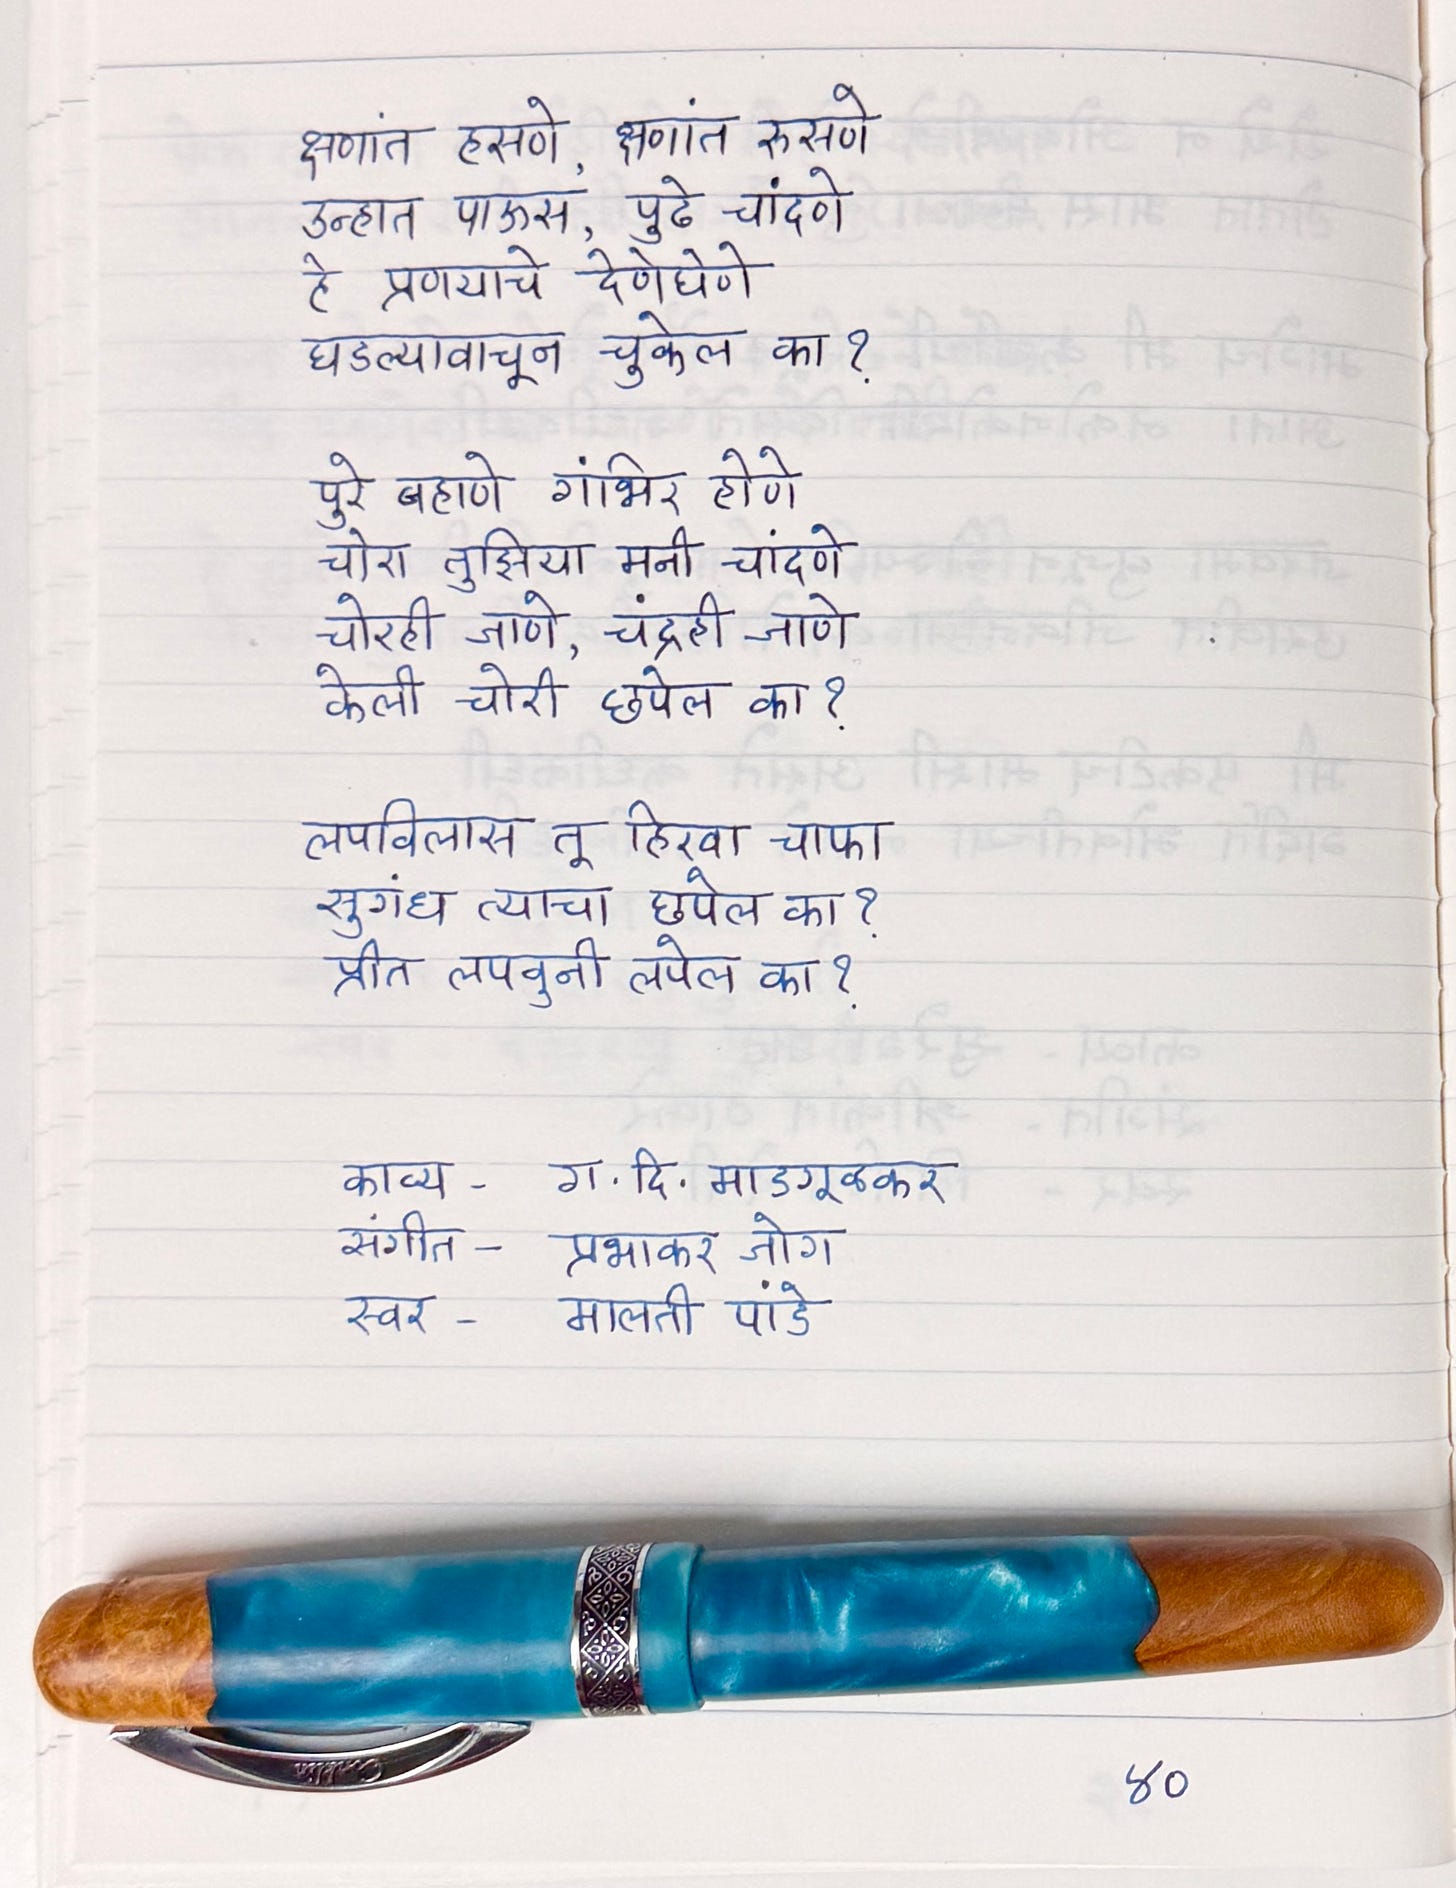 क्षणांत हसणे, क्षणांत रुसणे
उन्हात पाऊस, पुढे चांदणे
हे प्रणयाचे देणेघेणे
घडल्यावाचून चुकेल का?
पुरे बहाणे गंभिर होणे
चोरा तुझिया मनी चांदणे
चोरही जाणे, चंद्रही जाणे
केली चोरी छपेल का?
लपविलास तू हिरवा चाफा
सुगंध त्याचा छपेल का?
प्रीत लपवुनी लपेल का?
काव्य - ग. दि. माडगूळकर
संगीत - प्रभाकर जोग
स्वर - मालती पांडे
४०